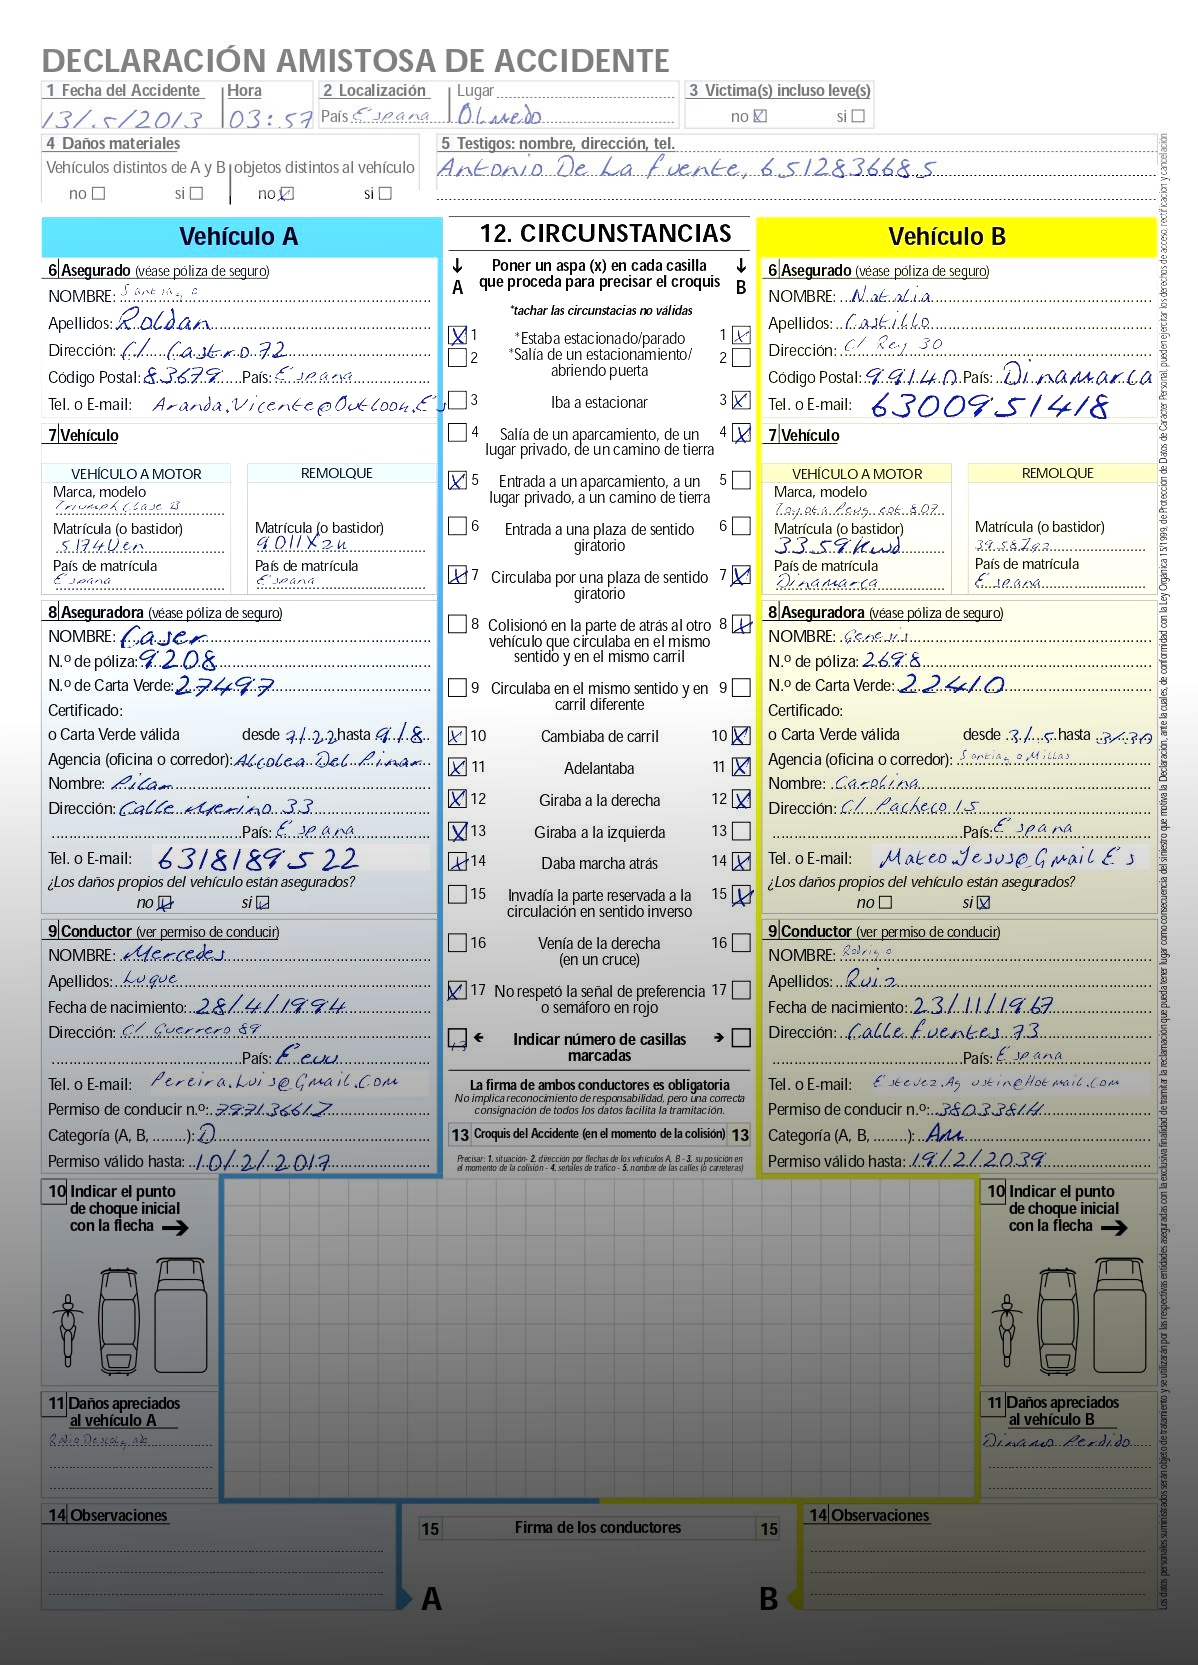 DECLARACIÓN AMISTOSA DE ACCIDENTE
1 Fecha del Accidente Hora 2 Localización Lugar 3 Victima(s) incluso leve(s)
13/5/2013 03:57 País Espana Olmedo no X si
4 Daños materiales
Vehículos distintos de A y B objetos distintos al vehículo
no si no X si
5 Testigos: nombre, dirección, tel.
Antonio De La Fuente, 6512836685
Vehículo A
6 Asegurado (véase póliza de seguro)
NOMBRE: Santiago
Apellidos: Roldan
Dirección: C/ Castro 72
Código Postal: 83679 País: Espana
Tel. o E-mail: Aranda.Vicente@Outlook.Es
7 Vehículo
VEHÍCULO A MOTOR REMOLQUE
Marca, modelo
Triumph Clase B
Matrícula (o bastidor) Matrícula (o bastidor)
5174Uen 9011Xzn
País de matrícula País de matrícula
Espana Espana
8 Aseguradora (véase póliza de seguro)
NOMBRE: Caser
N.º de póliza: 9208
N.º de Carta Verde: 27497
Certificado:
o Carta Verde válida desde 7/22 hasta 9/8
Agencia (oficina o corredor): Alcolea Del Pinar
Nombre: Pilar
Dirección: Calle Merino 33
País: Espana
Tel. o E-mail: 6318189522
¿Los daños propios del vehículo están asegurados?
no X si X
9 Conductor (ver permiso de conducir)
NOMBRE: Mercedes
Apellidos: Luque
Fecha de nacimiento: 28/4/1994
Dirección: C/ Guerrero 89
País: Eeuu
Tel. o E-mail: Pereira.Luis@Gmail.Com
Permiso de conducir n.º: 79713661Z
Categoría (A, B, ........): D
Permiso válido hasta: 10/2/2017
12. CIRCUNSTANCIAS
Poner un aspa (x) en cada casilla
que proceda para precisar el croquis
A B
*tachar las circunstacias no validas
X 1 *Estaba estacionado/parado 1 X
2 *Salía de un estacionamiento/ 2
abriendo puerta
3 Iba a estacionar 3 X
4 Salía de un aparcamiento, de un 4 X
lugar privado, de un camino de tierra
X 5 Entrada a un aparcamiento, a un 5
lugar privado, a un camino de tierra
6 Entrada a una plaza de sentido 6
giratorio
X 7 Circulaba por una plaza de sentido 7 X
giratorio
8 Colisionó en la parte de atrás al otro 8 X
vehículo que circulaba en el mismo
sentido y en el mismo carril
9 Circulaba en el mismo sentido y en 9
carril diferente
X 10 Cambiaba de carril 10 X
X 11 Adelantaba 11 X
X 12 Giraba a la derecha 12 X
X 13 Giraba a la izquierda 13
X 14 Daba marcha atrás 14 X
15 Invadía la parte reservada a la 15 X
circulación en sentido inverso
16 Venía de la derecha 16
(en un cruce)
X 17 No respetó la señal de preferencia 17
o semáforo en rojo
13 Indicar número de casillas
marcadas
La firma de ambos conductores es obligatoria
No implica reconocimiento de responsabilidad, pero una correcta
consignación de todos los datos facilita la tramitación.
13 Croquis del Accidente (en el momento de la colisión) 13
Precisar: 1. situación- 2. dirección por flechas de los vehículos A, B - 3. su posición en
el momento de la colisión - 4. señales de tráfico - 5. nombre de las calles (o carreteras)
Vehículo B
6 Asegurado (véase póliza de seguro)
NOMBRE: Natalia
Apellidos: Castillo
Dirección: C/ Rey 30
Código Postal: 99140 País: Dinamarca
Tel. o E-mail: 6300951418
7 Vehículo
VEHÍCULO A MOTOR REMOLQUE
Marca, modelo
Toyota Peugeot 807
Matrícula (o bastidor) Matrícula (o bastidor)
3359Kwd 3958Zgz
País de matrícula País de matrícula
Dinamarca Espana
8 Aseguradora (véase póliza de seguro)
NOMBRE: Genesis
N.º de póliza: 2698
N.º de Carta Verde: 22410
Certificado:
o Carta Verde válida desde 31/5 hasta 3/30
Agencia (oficina o corredor): Santiago Millas
Nombre: Carolina
Dirección: C/ Pacheco 15
País: Espana
Tel. o E-mail: MateoJesus@Gmail Es
¿Los daños propios del vehículo están asegurados?
no si X
9 Conductor (ver permiso de conducir)
NOMBRE: Rodrigo
Apellidos: Ruiz
Fecha de nacimiento: 23/11/1967
Dirección: Calle Fuentes 73
País: Espana
Tel. o E-mail: Estevez.Agustin@Hotmail.Com
Permiso de conducir n.º: 38033814
Categoría (A, B, ........): Am
Permiso válido hasta: 19/2/2039
10 Indicar el punto
de choque inicial
con la flecha
11 Daños apreciados
al vehículo A
Radio Descolgado
10 Indicar el punto
de choque inicial
con la flecha
11 Daños apreciados
al vehículo B
Dinamo Perdido
14 Observaciones
15 Firma de los conductores 15
A B
14 Observaciones
Los datos personales suministrados serán objeto de tratamiento y se utilizarán por las respectivas entidades aseguradas con la exclusiva finalidad de tramitar la reclamación que pueda tener lugar como consecuencia del siniestro que motiva la Declaración, ante la cuales, de conformidad con la Ley Orgánica 15/1999, de Protección de Datos de Carácter Personal, pueden ejercitar los derechos de acceso, rectificación y cancelación